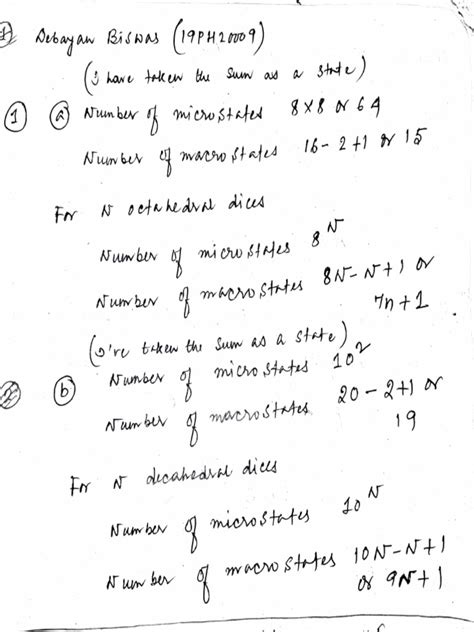 1 Debayan Biswas (19PH20009)
(I have taken the sum as a state)
1 a Number of microstates 8×8 or 64
Number of macrostates 16-2+1 or 15
For N octahedral dices
Number of microstates 8^N
Number of macrostates 8N-N+1 or
7n+1
(I've taken the sum as a state)
b Number of microstates 10^2
Number of macrostates 20-2+1 or
19
For N decahedral dices
Number of microstates 10^N
Number of macrostates 10N-N+1
or 9N+1